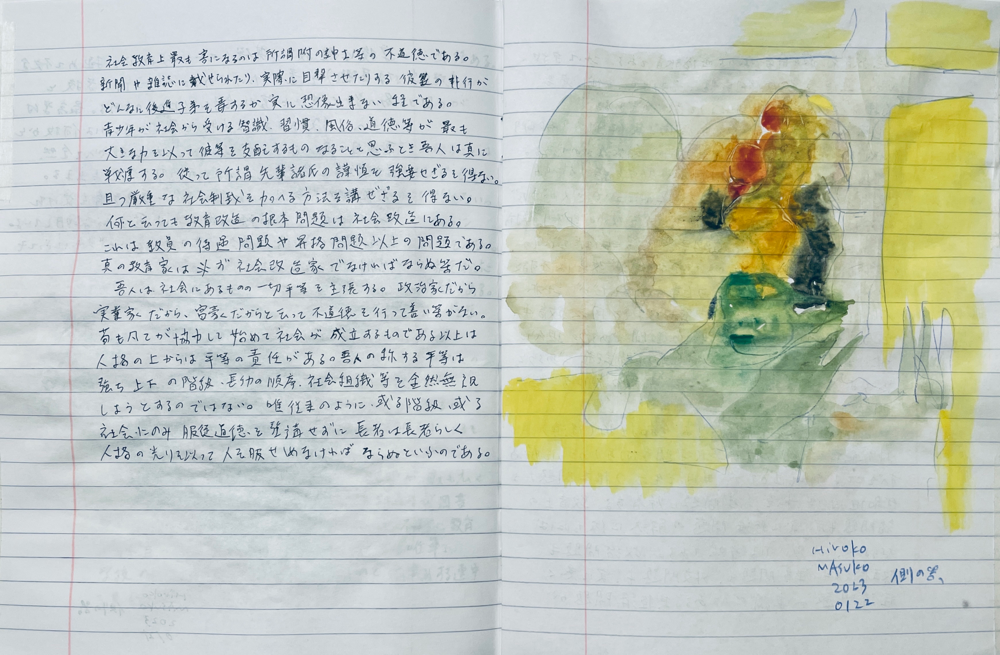 社会教育上最も害になるのは所謂 紳士等の不道徳である。
新聞や雑誌に載せられたり、実際に目撃させたりする 行が
どんなに後進子弟を毒するか実に想像出来ない程である。
青少年が社会から受ける智識、習慣、風俗、道徳等が最も
大きな力を以って彼等を支配するものなることを思ふとき吾人は真に
戦慄する。従って所謂先輩諸氏の謹慎を強要せざるを得ない。
且つ厳重な社会制裁を加へる方法を講ぜざるを得ない。
何と云っても教育改造の根本問題は社会改造にある。
これは教員の待遇問題や昇格問題以上の問題である。
真の教育家は必ず社会改造家でなければならぬ筈だ。
吾人は社会にあるものの一切平等を主張する。政治家だから
実業家だから、富豪だからと云って不道徳を行って善い筈がない。
苟も凡てが協力して始めて社会が成立するものである以上は
人格の上からは平等の責任がある。吾人の称する平等は
強ち上下の階級、長幼の順序、社会組織等を全然無視
しようとするのではない。唯従来のように、或る階級、或る
社会にのみ服従道徳を せずに長者は長者らしく
人格の光りを以って人を服せしめなければならぬといふのである。
Hiroko
MASUKO
2023
0122